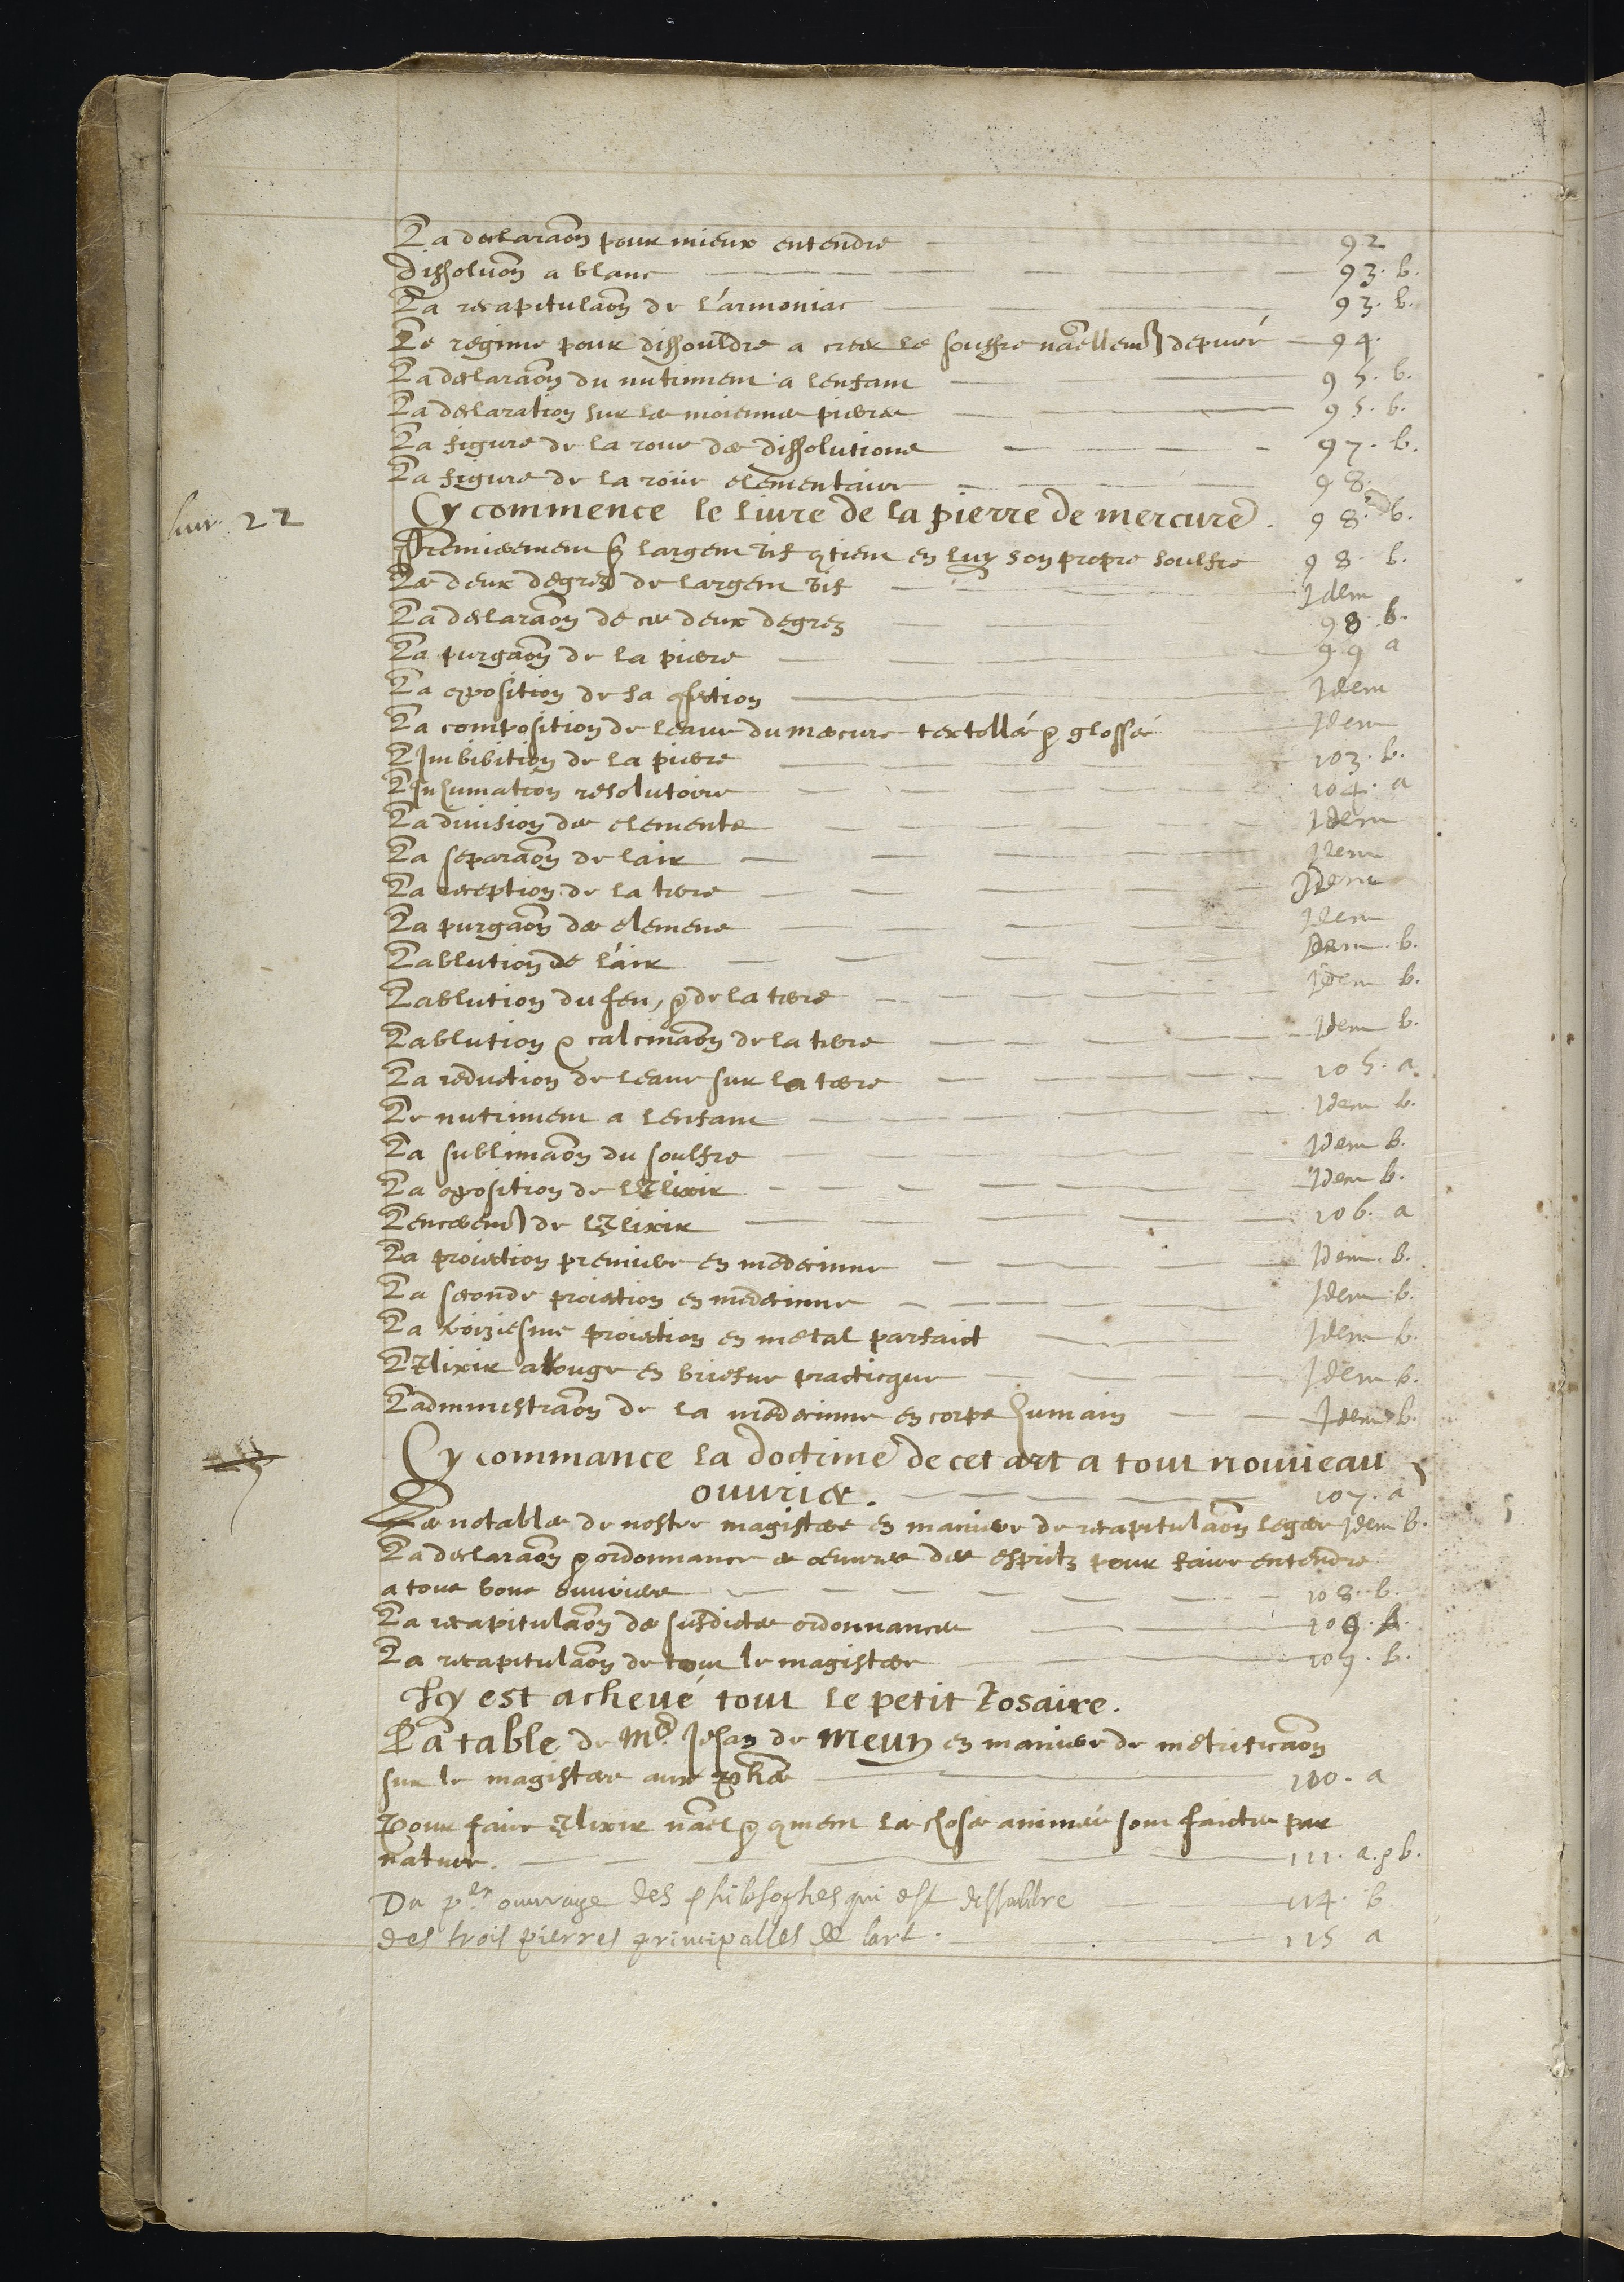 La declaraon pour mieux entendre 92
dissoluon a blanc 93. b.
La recapitulaon de l'armoniac 93. b.
Le regime pour dissouldre a creer le souffre nãellem depuré 94.
La declaraon du nutriment a lenfant 95. b.
La declaration sur les moiennes pierres 95. b.
La figure de la roue des dissolutions 97. b.
La figure de la roüe elementaire 98.
livre 22
Cy commence le livre de la pierre de mercure. 98. b.
Premierement largent vif qtient en luy son propre soulfre 98. b.
Les deux degrez de largent vif Idem
La declaraon de ces deux degrez 98. b.
La purgaon de la pierre 99 a
La qposition de sa qfection Idem
La composition de leaue du mercure textellé & glossé Idem
L'Imbibition de la pierre 103. b.
L'Inhumation resolutoire 104. a
La division des elements Idem
La separaon de lair Idem
La reception de la terre Idem
La purgaon des elemens Idem
Lablution de l'air Idem. b.
Lablution du feu, & de la terre Idem b.
Lablution & calcinaon de la terre Idem b.
La reduction de leaue sur la terre 105. a.
Le nutriment a lenfant Idem b.
La sublimaon du soulfre Idem b.
La qposition de l'Elixir Idem b.
Lencerem de l'Elixir 106. a
La proiection premiere en medecinne Idem. b.
La seconde proiection en medecinne Idem b.
La troiziesme proiection en metal parfaict Idem b.
L'Elixir a rouge en briefue practicque Idem b.
Ladministraon de la medecinne en corps humain Idem b.
Cy commance la doctrine de cet art a tout nouueau
ouurier. 107. a
Les notables de nostre magistere en maniere de recapitulaon legere Idem b.
La declaraon & ordonnance es oeuures des espritz pour faire entendre
a tous bons ouuriers 108. b.
La recapitulaon des susdictes ordonnances 109.
La recapitulaon de tout le magistere 109. b.
Icy est acheué tout le petit Rosaire.
La table de Me Jehan de Meun en maniere de metrificaon
sur le magistere aux phes 110. a
Pour faire Elixir nãel & qment les choses animées sont faictes par
nature. 111. a. & b.
Du per ouvrage des philosophes qui est dissouldre 114. b
des trois pierres principalles de lart. 115 a